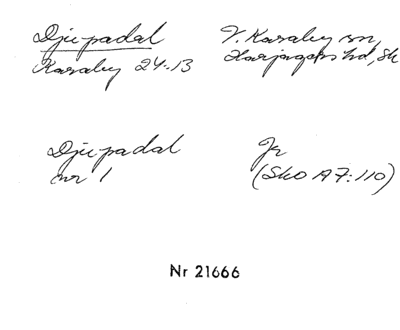 Djupadal
Karaby 24-13
V. Karaby sn,
Harjagers hd, Sk
Djupadal
nr 1
Jr
(Sko A7:110)
Nr 21666